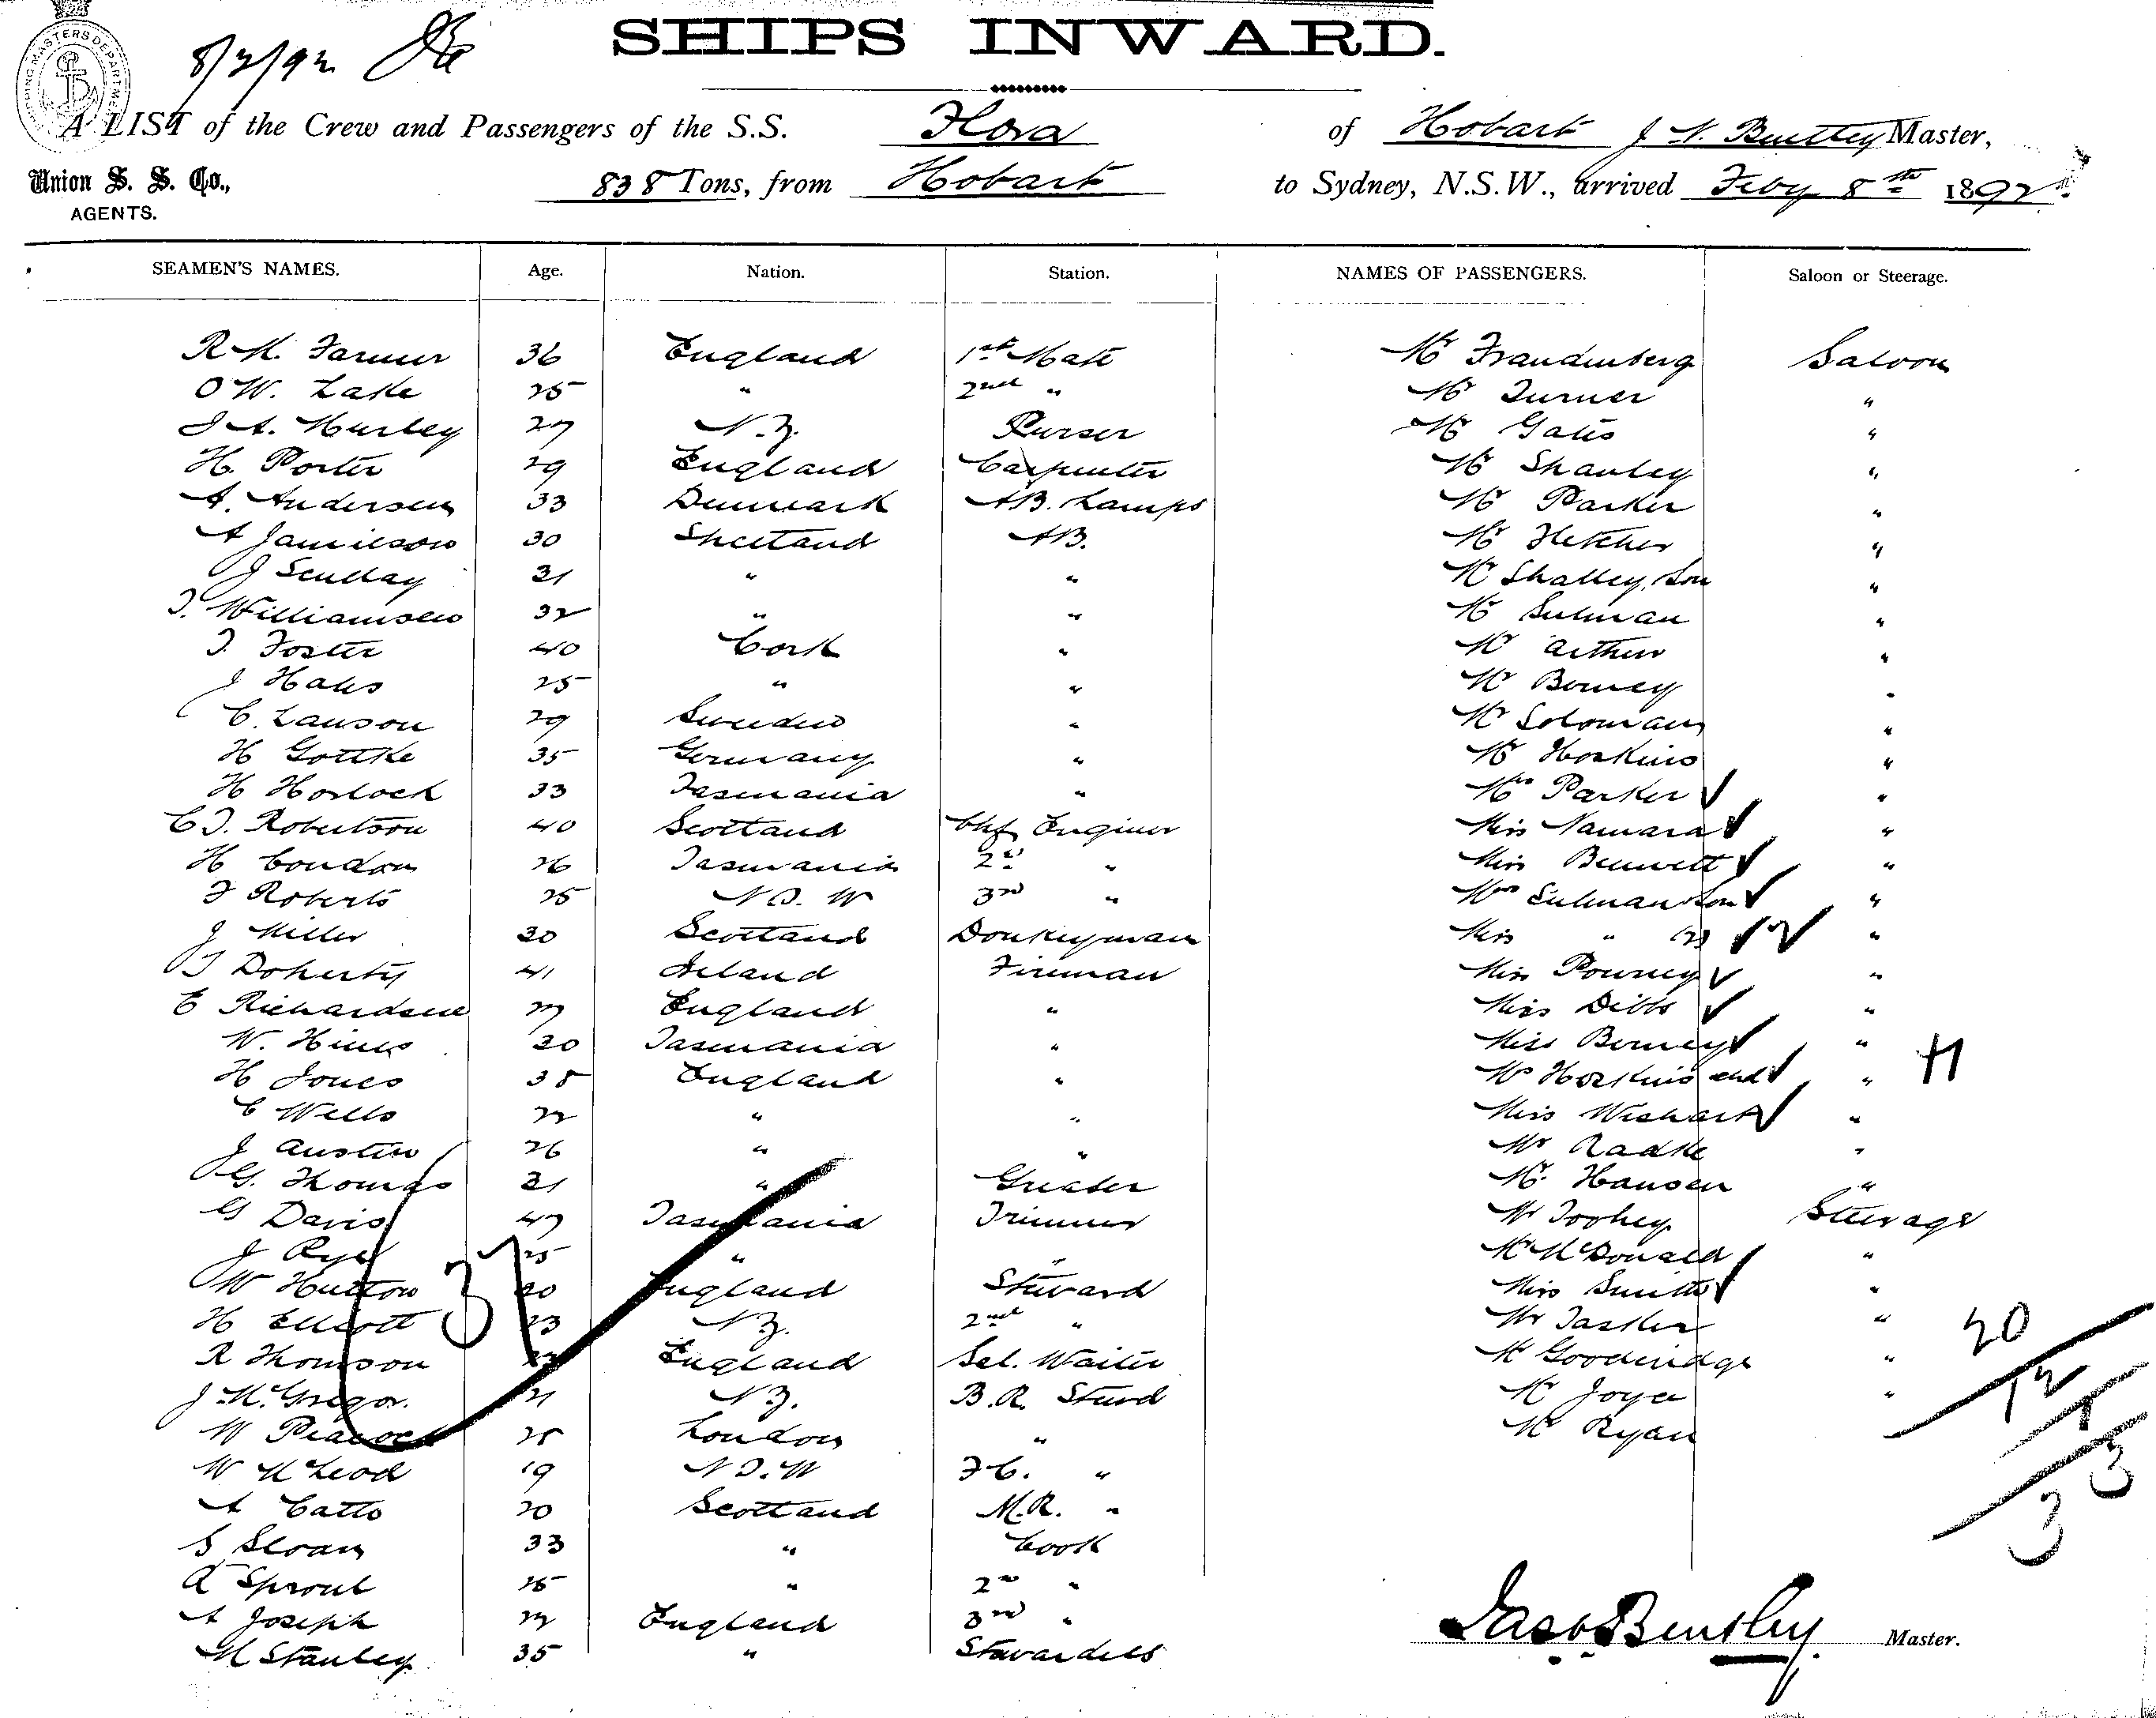 SHIPPING MASTERS DEPARTMENT
8/2/92
SHIPS INWARD.
A LIST of the Crew and Passengers of the S.S. Flora of Hobart J N. Bentley Master,
Union S. S. Co., 838 Tons, from Hobart to Sydney, N.S.W., arrived Feby 8th 1892
AGENTS.
SEAMEN'S NAMES. Age. Nation. Station. NAMES OF PASSENGERS. Saloon or Steerage.
R M. Farmer 36 England 1st Mate Mr Frandenberg Saloon
O W. Lake 25 " 2nd " Mr Turner "
J A. Hurley 27 N.Z. Purser Mr Gates "
H. Porter 29 England Carpenter Mr Shanley "
A. Andersen 33 Denmark AB. Lamps Mr Parker "
A Jamieson 30 Shetland AB. Mr Fletcher "
J Scullay 31 " " Mr Shalley, Son "
T. Williamson 32 " " Mr Sulman "
T. Foster 40 Cork " Mr Arthur "
J Hales 25 " " Mr Borney "
C. Lauson 29 Sweden " Mr Solomann "
H Gottke 35 Germany " Mr Hoskins "
H Horlock 33 Tasmania " Mrs Parker "
C J. Robertson 40 Scotland Chf Engineer Miss Namara "
H Condon 26 Tasmania 2nd " Miss Bennett "
F Roberts 25 N S. W 3rd " Mrs Sulman Son "
J Miller 30 Scotland Donkeyman Miss " (2) 2 "
J Doherty 41 Ireland Fireman Miss Pourney "
E Richardson 27 England " Miss Dibbs "
W. Hines 30 Tasmania " Miss Borney "
H Jones 38 England " Mrs Hoskins and " H
C Wells 22 " " Miss Wishart "
J Austin 26 " " Mr Radke "
G. Thomas 31 " Greaser Mr Hansen "
G Davis 47 Tasmania Trimmer Mr Toohey Steerage
J Rye 25 " " Mr McDonald "
W Hutton 30 England Steward Miss Smith "
H Elliott 23 N Z. 2nd " Mr Tasker "
R Thomson England Sal. Waiter Mr Gooderidge "
J McGregor. 21 N Z. B. R. Stwd Mr Joyce "
W Peacock 25 London " Mr Ryan
W McLeod 19 N S. W F C. "
A Catto 20 Scotland M.R. "
S Sloan 33 " Cook
A Sproul 25 " 2nd "
A Joseph 22 England 3rd "
M Stanley 35 " Stewardess
37
20
12
1
33
Jacob Bentley Master.